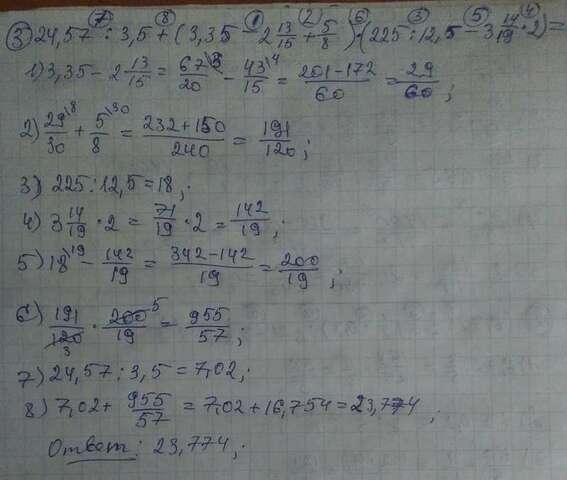 ③ 24,57 : 3,5 + (3,35 - 2 13/15 + 5/8) · (225 : 12,5 - 3 14/19 · 2) =
1) 3,35 - 2 13/15 = 67/20 \3 - 43/15 \4 = 201-172/60 = 29/60 ;
2) 29/30 \8 + 5/8 \30 = 232+150/240 = 191/120 ;
3) 225 : 12,5 = 18 ;
4) 3 14/19 · 2 = 71/19 · 2 = 142/19 ;
5) 18 \19 - 142/19 = 342-142/19 = 200/19 ;
6) 191/120 3 · 200 5/19 = 955/57 ;
7) 24,57 : 3,5 = 7,02 ;
8) 7,02 + 955/57 = 7,02 + 16,754 = 23,774 ;
Ответ: 23,774 ;